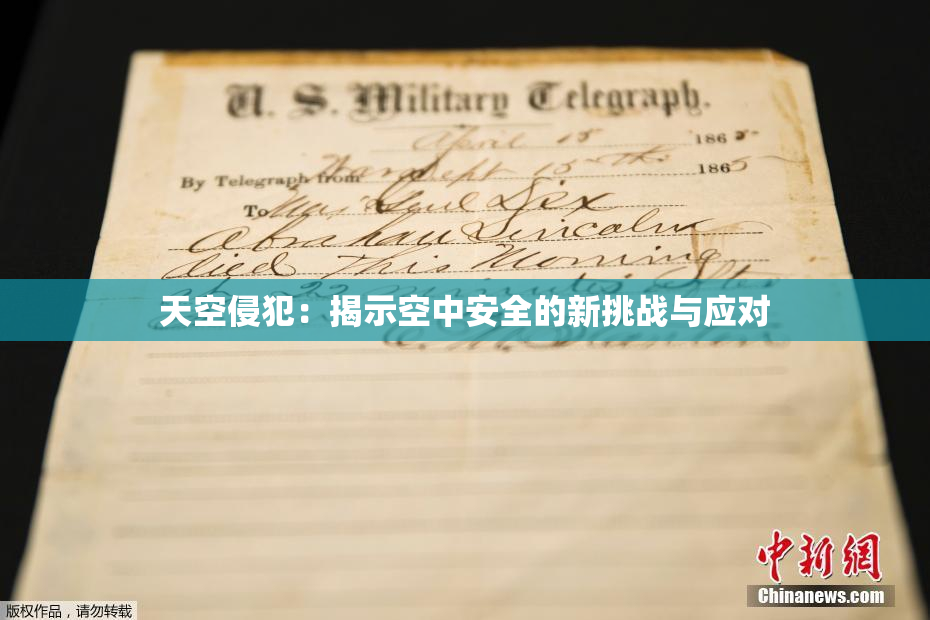 U. S. Military Telegraph.
April 15 1865
By Telegraph from War Dept 15th 1865
To Maj Genl Dix
Abraham Lincoln
died This Morning
at 22 minutes after
天空侵犯：揭示空中安全的新挑战与应对
E. M. Stanton
中新網
Chinanews.com
版权作品，请勿转载